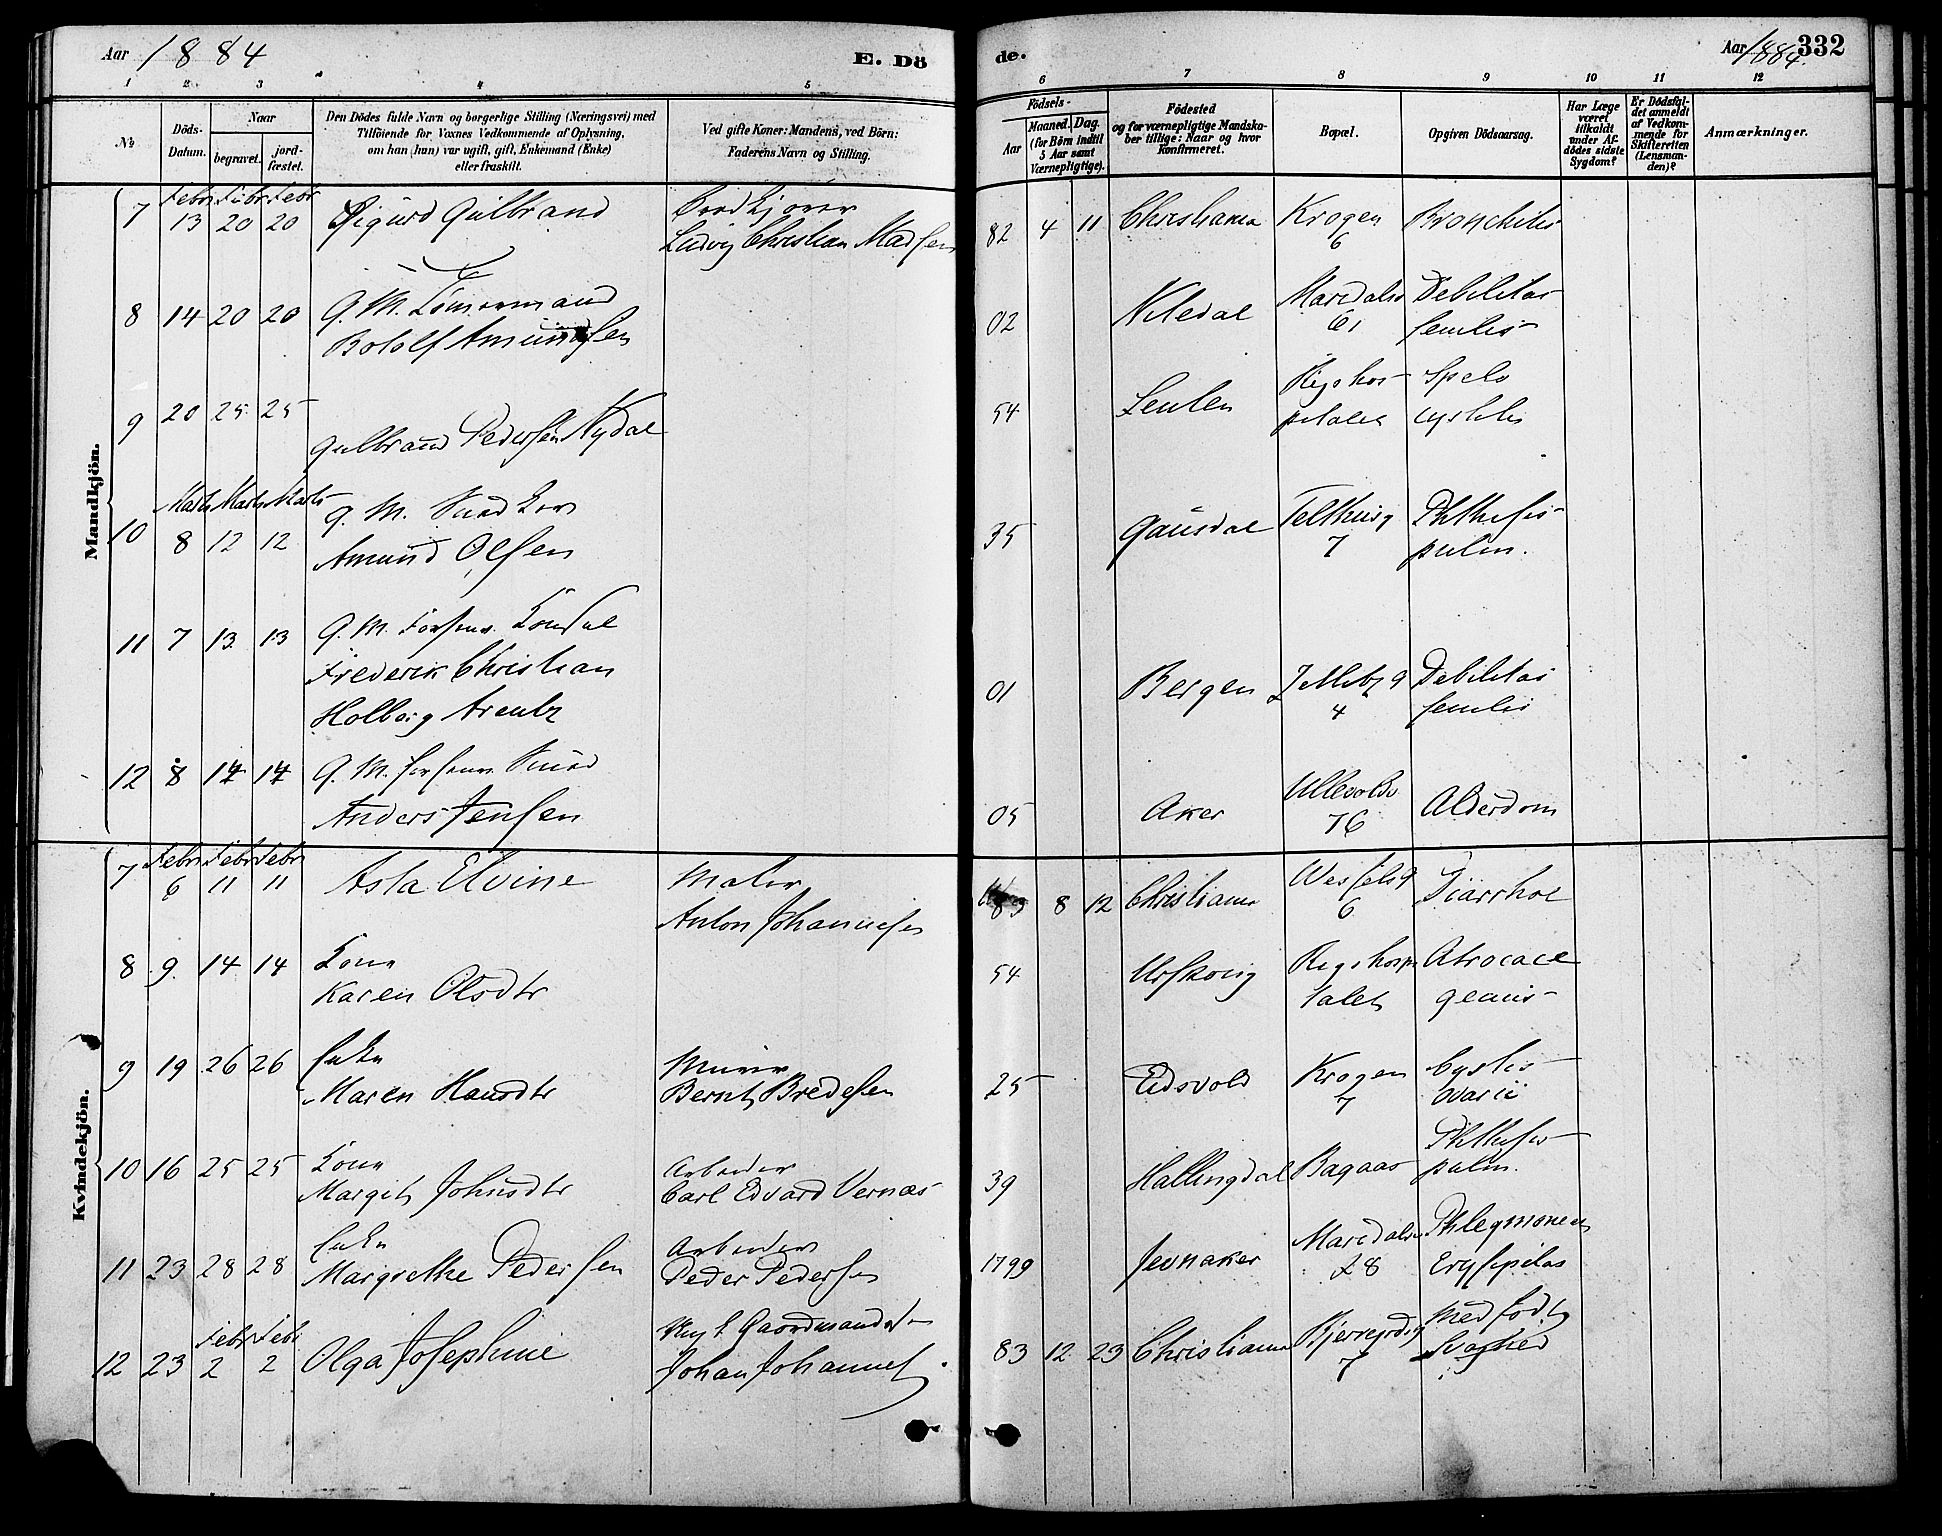 Aar 1884
E. Dö
de.
Aar 1884.
332
1 2 3 4 5 6 7 8 9 10 11 12
No
Döds-Datum.
Naar
begravet.
jord-fæstet.
Den Dödes fulde Navn og borgerlige Stilling (Næringsvei) med
Tilföiende for Voxnes Vedkommende af Oplysning,
om han (hun) var ugift, gift, Enkemand (Enke)
eller fraskilt.
Ved gifte Koner: Mandens, ved Börn:
Faderens Navn og Stilling.
Födsels-
Aar
Maaned. Dag.
(for Börn indtil
5 Aar samt
Værnepligtige).
Födested
og for værnepligtige Mandska-
ber tillige: Naar og hvor
konfirmeret.
Bopæl.
Opgiven Dödsaarsag.
Har Læge
været
tilkaldt
under Af-
dödes sidste
Sygdom?
Er Dödsfal-
det anmeldt
af Vedkom-
mende for
Skifteretten
(Lensman-
den)?
Anmærkninger.
Mandkjön.
Febr Febr Febr
7 13 20 20 Sigurd Gulbrand
Ludvig Christian Madsen
82 4 11 Christiania Krogen Bronchitis
6
8 14 20 20 G. M. Tömmermand
Botolf Amundsen
02 Nitedal Maridalsv Debilitas
61 senilis
9 20 25 25
Gulbrand Pedersen Nydal
54 Rigshos-
pitalet cystitis
Marts Marts Marts
10 8 12 12 G. M.
Amund Olsen
35 Gausdal Telthusg Phthisis
7 pulm.
11 7 13 13 G. M.
Frederik Christian
Holberg Arentz
01 Bergen Debilitas
4 senilis
12 8 14 14 G. M.
Anders Jensen
05 Aker Ullevoldsv Alderdom
76
Kvindekjön.
Febr Febr Febr
7 6 11 11 Asta Elvine Maler
Anton Johannesen
83 8 12 Christiania Wesselsg Diarrhoe
6
8 9 14 14 Kone
Karen Olsdtr
54 Urskoug Rigshospi
talet
9 19 26 26 Enke
Maren Hansdtr
Murer
Bernt Bredesen
25 Eidsvold Krogen Cystis
7 ovarii
10 16 25 25 Kone
Margit Johnsdtr
Arbeider
Carl Edvard Vernæs
39 Hallingdal Bagaas Phthisis
pulm.
11 23 28 28 Enke
Margrethe Pedersen
Arbeider
Peder Pedersen
1799 Jevnaker Maridalsv Phlegmonen
28 Erysipelas
Febr Febr
12 23 2 2 Olga Josephine
Johan Johannes
83 12 23 Christiania Bjerregdsg Medfödt
7 Svaghed